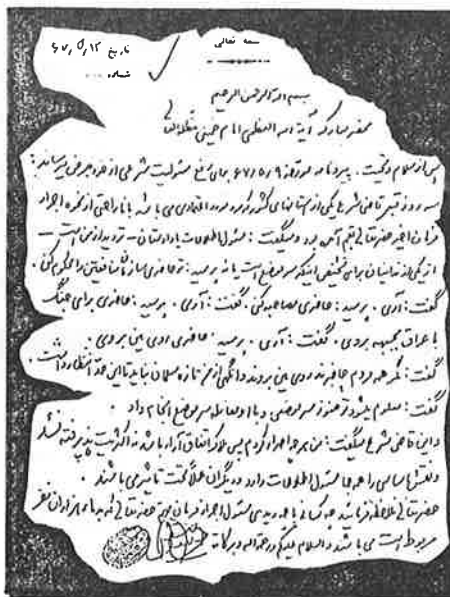 بسمه تعالی
تاریخ ۶۷٫۵٫۱۳
شماره
بسم الله الرحمن الرحیم
محضر مبارک آیة الله العظمی امام خمینی مدظله العالی
پس از سلام و تحیت، پیرو نامه مورخه ۶۷٫۵٫۹ برای رفع مسئولیت شرعی از خود بعرض میرساند:
سه روز قبل قاضی شرع یکی از استانهای کشور که مرد مورد اعتمادی می باشد با ناراحتی از نحوه اجراء
فرمان اخیر حضرتعالی بقم آمده بود و میگفت: مسئول اطلاعات یا دادستان - تردید از من است -
از یکی از زندانیان برای تشخیص اینکه سر موضع است یا نه پرسید: تو حاضری سازمان منافقین را محکوم کنی،
گفت: آری، پرسید: حاضری مصاحبه کنی، گفت: آری، پرسید: حاضری برای جنگ
با عراق بجبهه بروی، گفت: آری، پرسید: حاضری روی مین بروی،
گفت: مگر همه مردم حاضرند روی مین بروند وانگهی از من تازه مسلمان نباید تا این حد انتظار داشت،
گفت: معلوم میشود تو هنوز سر موضعی و با او معامله سر موضع انجام داد
و این قاضی شرع میگفت: من هر چه اصرار کردم پس ملاک اتفاق آراء باشد نه اکثریت پذیرفته نشد
و نقش اساسی را همه جا مسئول اطلاعات دارد و دیگران عملاً تحت تأثیر می باشند،
حضرتعالی ملاحظه فرمائید چه کسانی با چه دیدی مسئول اجراء فرمان مهم حضرتعالی که به دماء هزاران نفر
مربوط است می باشند والسلام علیکم و رحمة الله و برکاته